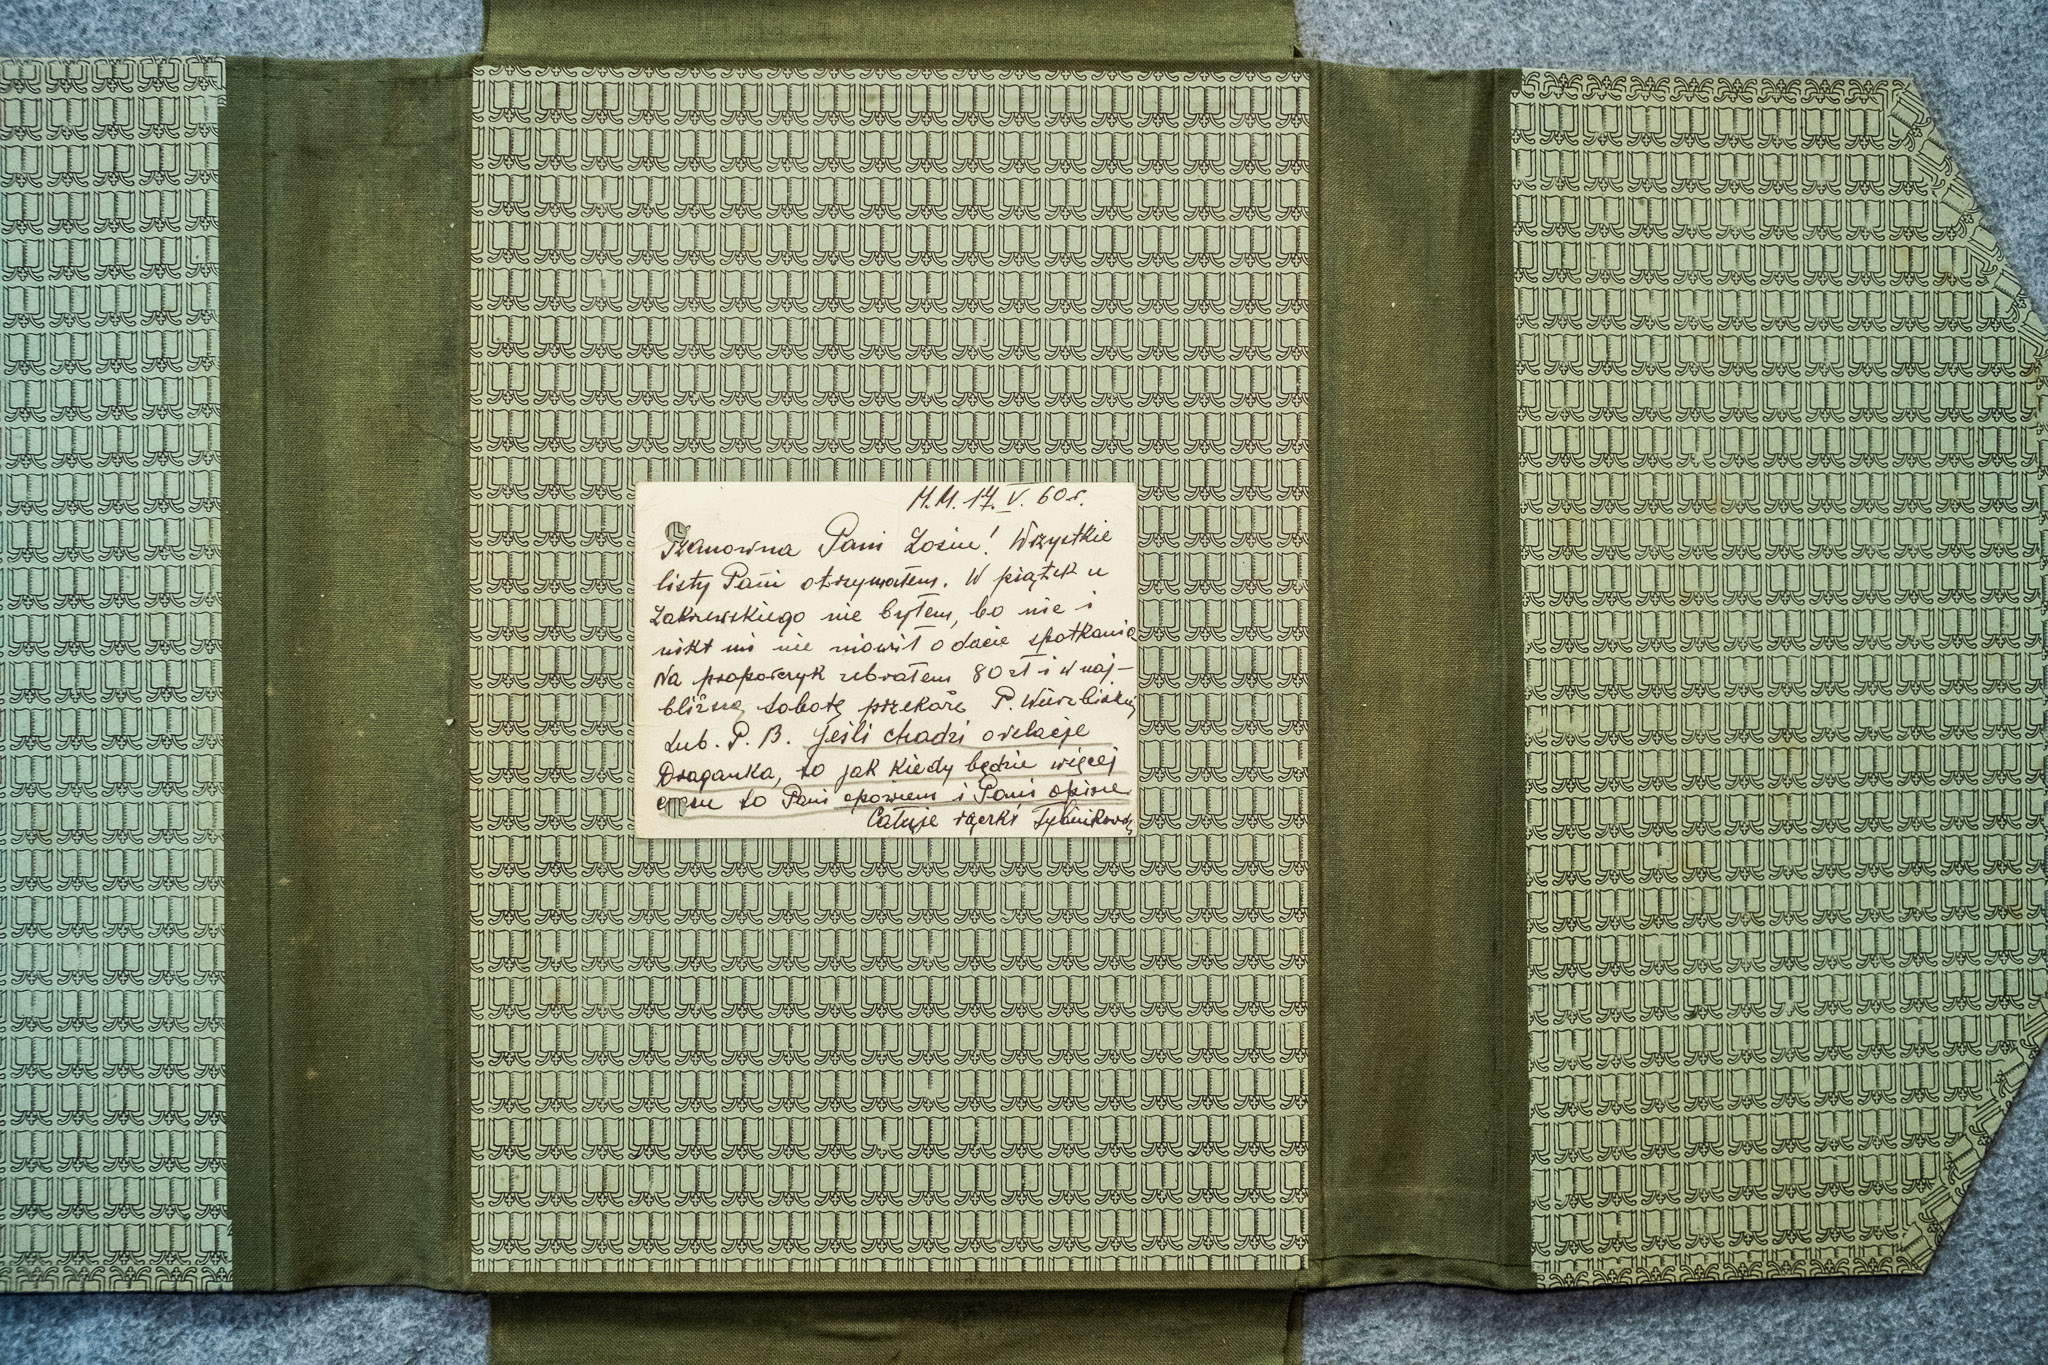 M.M. 17.V. 60 r.
Szanowna Pani Zosiu! Wszystkie
listy Pani otrzymałem. W piątek u
Zakrzewskiego nie byłem, bo nie i
nikt mi nie mówił o dacie spotkania
Na proporczyk zebrałem 80 zł i w naj-
bliższą sobotę przekażę P. Wierzbickiej
lub. P. B. Jeśli chodzi o relacje
Draganka, to jak kiedy będzie więcej
czasu to Pani opowiem i Pani opisze
Całuję rączki